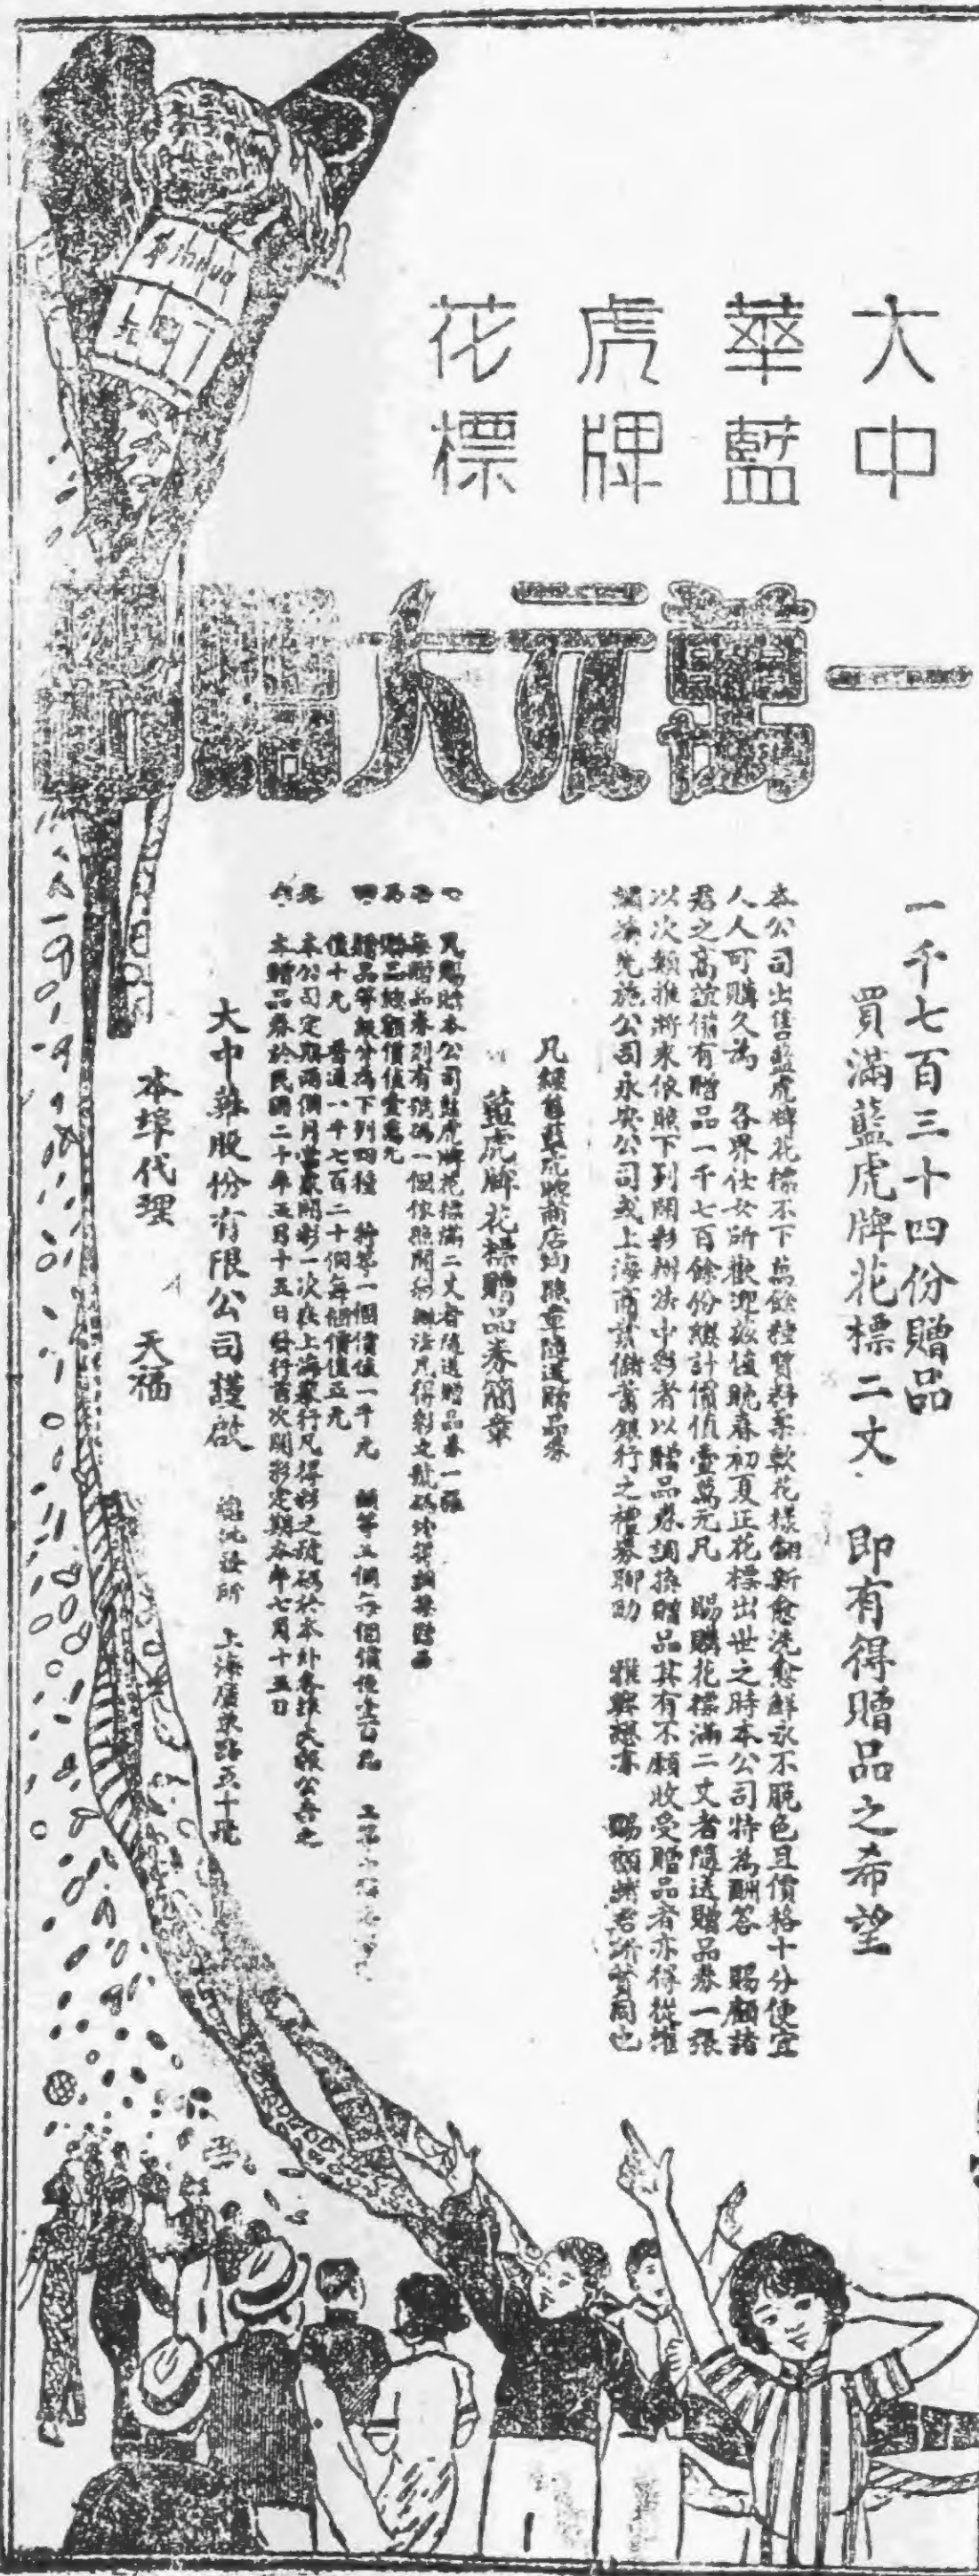 大中
華藍
虎牌
花標
一萬元大贈
一千七百三十四份贈品
買滿藍虎牌花標二丈 即有得贈品之希望
本公司出售藍虎牌花標不下萬餘種質料柔軟花樣翻新愈洗愈鮮永不脫色且價格十分便宜
人人可購久為 各界仕女所歡迎茲值晚春初夏正花標出世之時本公司特為酬答 賜顧諸
君之高誼備有贈品一千七百餘份總計價值壹萬元凡 賜購花標滿二丈者隨送贈品券一張
以次類推將來依照下列開彩辦法中彩者以贈品券調換贈品其有不願收受贈品者亦得從維
調換先施公司永安公司或上海商業儲蓄銀行之禮券聊助 雅興 賜顧諸君所贊同也
凡經售藍虎牌商店均照章隨送贈品券
藍虎牌花標贈品券簡章
凡賜購本公司藍虎牌花標滿二丈者隨送贈品券一張
每贈品券列有號碼一個依照開彩辦法凡得彩之號碼均得調換贈品
贈品總額價值壹萬元
贈品等級分為下列四種 特等一個價值一千元 頭等三個每個價值壹百元
值十元 普通一千七百二十個每個價值五元
本公司定期兩個月當眾開彩一次在上海舉行凡得彩之號碼於本外各埠大報公告之
本贈品券於民國二十年五月十五日發行首次開彩定期本年七月十五日
大中華股份有限公司謹啟 總批發所 上海廣東路五十號
本埠代理 天福